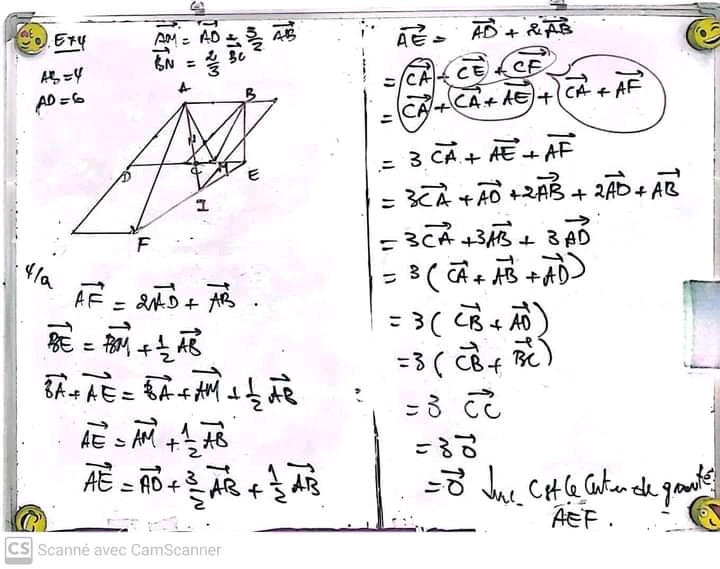 Ex4
AM→ = AD→ + 3/2 AB→
BN→ = 2/3 BC→
AB = 4
AD = 6
A
B
N
D
C
M
E
I
F
4/a
AF→ = 2AD→ + AB→.
BE→ = BM→ + 1/2 AB→
BA→ + AE→ = BA→ + AM→ + 1/2 AB→
AE→ = AM→ + 1/2 AB→
AE→ = AD→ + 3/2 AB→ + 1/2 AB→
AE→ = AD→ + 2AB→
= CA→ + CE→ + CF→
= CA→ + CA→ + AE→ + CA→ + AF→
= 3 CA→ + AE→ + AF→
= 3CA→ + AD→ + 2AB→ + 2AD→ + AB→
= 3CA→ + 3AB→ + 3AD→
= 3(CA→ + AB→ + AD→)
= 3(CB→ + AD→)
= 3(CB→ + BC→)
= 3 CC→
= 3 0→
= 0→ donc C est le Centre de gravité
AEF.
CS Scanné avec CamScanner